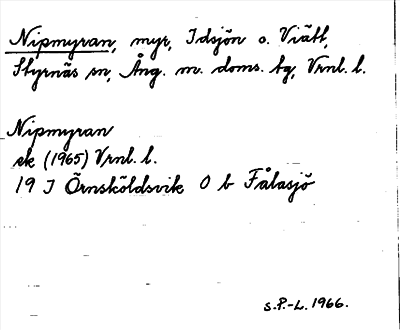 Nipmyran, myr, Idsjön o. Viätt,
Styrnäs sn, Ång. m. doms. tg, Vrnl. l.
Nipmyran
ek (1965) Vrnl. l.
19 J Örnsköldsvik O b Fålasjö
S.P.-L. 1966.